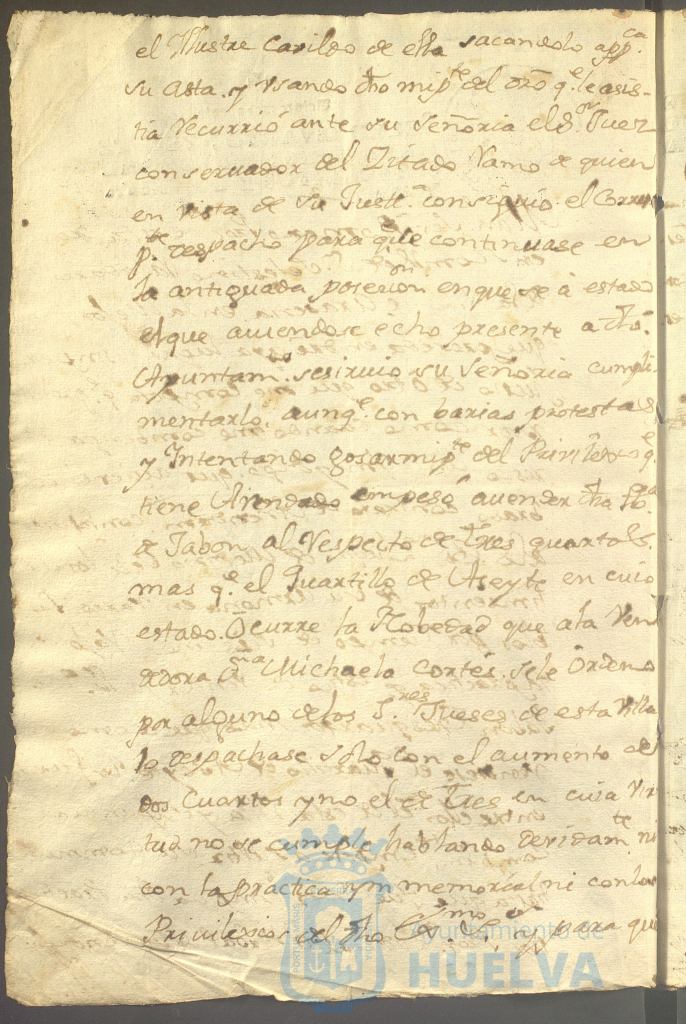 el Illustre Cavildo de ella sacandolo a pp.ca
su Asta. y Vsando dho mi p.te del dro q.e le asis-
tia Recurrió ante su Señoria el S.or Juez
conservador del Zitado Ramo de quien
en vista de su Justt.a consiguio el Corres
p.te despacho para q.e le continuase en
la antiguada posesion en que se a estado
el que aviendose echo presente a dho.
Ayuntam.to se sirvio su Señoria cumpli
mentarlo, aunq.e con barias protestas
y Intentando gosar mi p.te del Privilexio q.e
tiene Arendado empesó a vender dha
de Jabon al Respecto de tres quartos
mas q.e el Quartillo de Aseyte en cuio
estado. Ocurre la Novedad que a la Ven
dedora Michaela Cortés. se le Ordenó
por alguno de los S.res Jueses de esta Villa
lo despachase solo con el aumento de
dos Cuartos y no el de Tres en cuia Vir
tud no se cumple hablando devidam.te ni
con la practica ymmemorial ni con los
Privilexios del dho Ex.mo S.or y para que
Ayuntamiento de
HUELVA